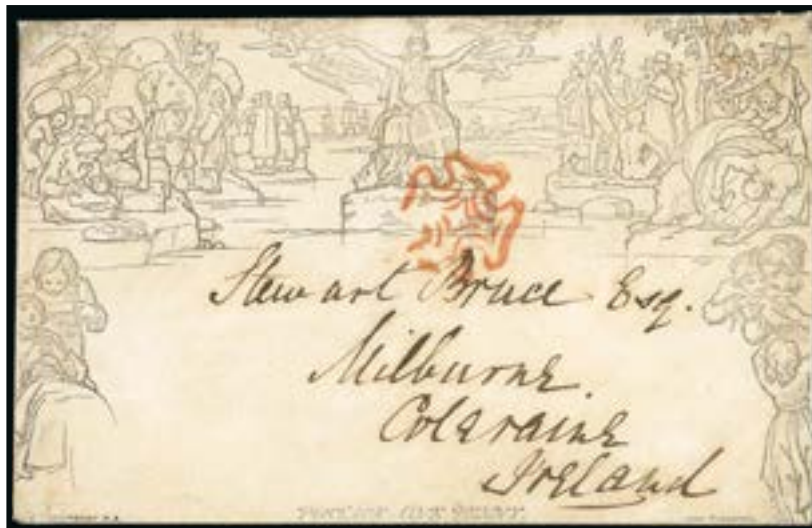 Stewart Bruce Esq.
Milburne
Coleraine
Ireland
POSTAGE ONE PENNY.